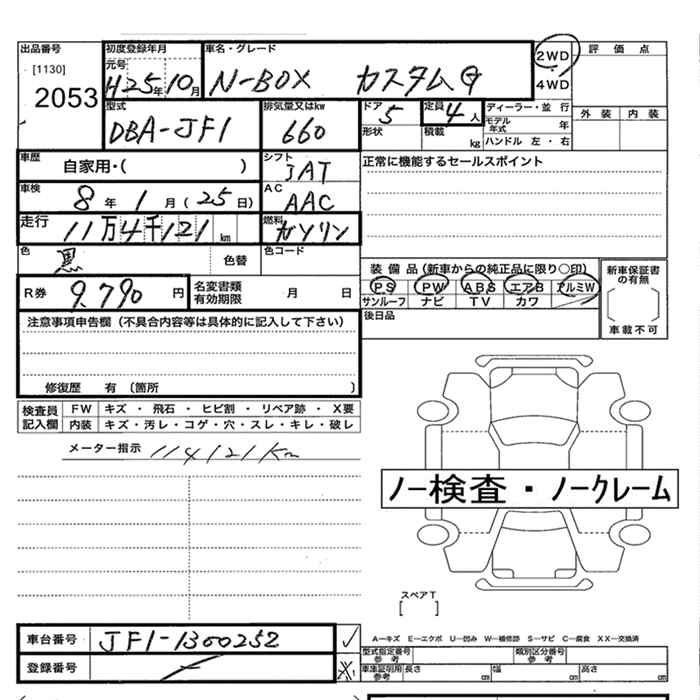 出品番号 初度登録年月 車名・グレード 2WD 評価点
[1130] 元号 H25年10月 N-BOX カスタムG 4WD
2053
型式 排気量又はkw ドア 定員 ディーラー・並 行 外装 内装
DBA-JF1 660 5 4人 モデル年式 年
形状 積載 kg ハンドル 左・右
車歴 自家用・( ) シフト 正常に機能するセールスポイント
車検 8年1月(25日) AC AAC
走行 11万4千121km 燃料 ガソリン
色 黒 色替 色コード
装備品(新車からの純正品に限り○印) 新車保証書の有無
R券 9.790円 名変書類有効期限 月 日 PS PW ABS エアB アルミW
サンルーフ ナビ TV カワ
注意事項申告欄(不具合内容等は具体的に記入して下さい) 後日品 車載不可
修復歴 有 (箇所 )
検査員記入欄 FW キズ・飛石・ヒビ割・リペア跡・X要
内装 キズ・汚レ・コゲ・穴・スレ・キレ・破レ
メーター指示 114121Km
ノー検査・ノークレーム
スペアT
[ ]
車台番号 JF1-1300252
A―キズ E―エクボ U―凹み W―補修跡 S―サビ C―腐食 XX―交換済
登録番号 型式指定番号 参考 類別区分番号 参考
車庫証明用 参考 長さ cm 幅 cm 高さ cm